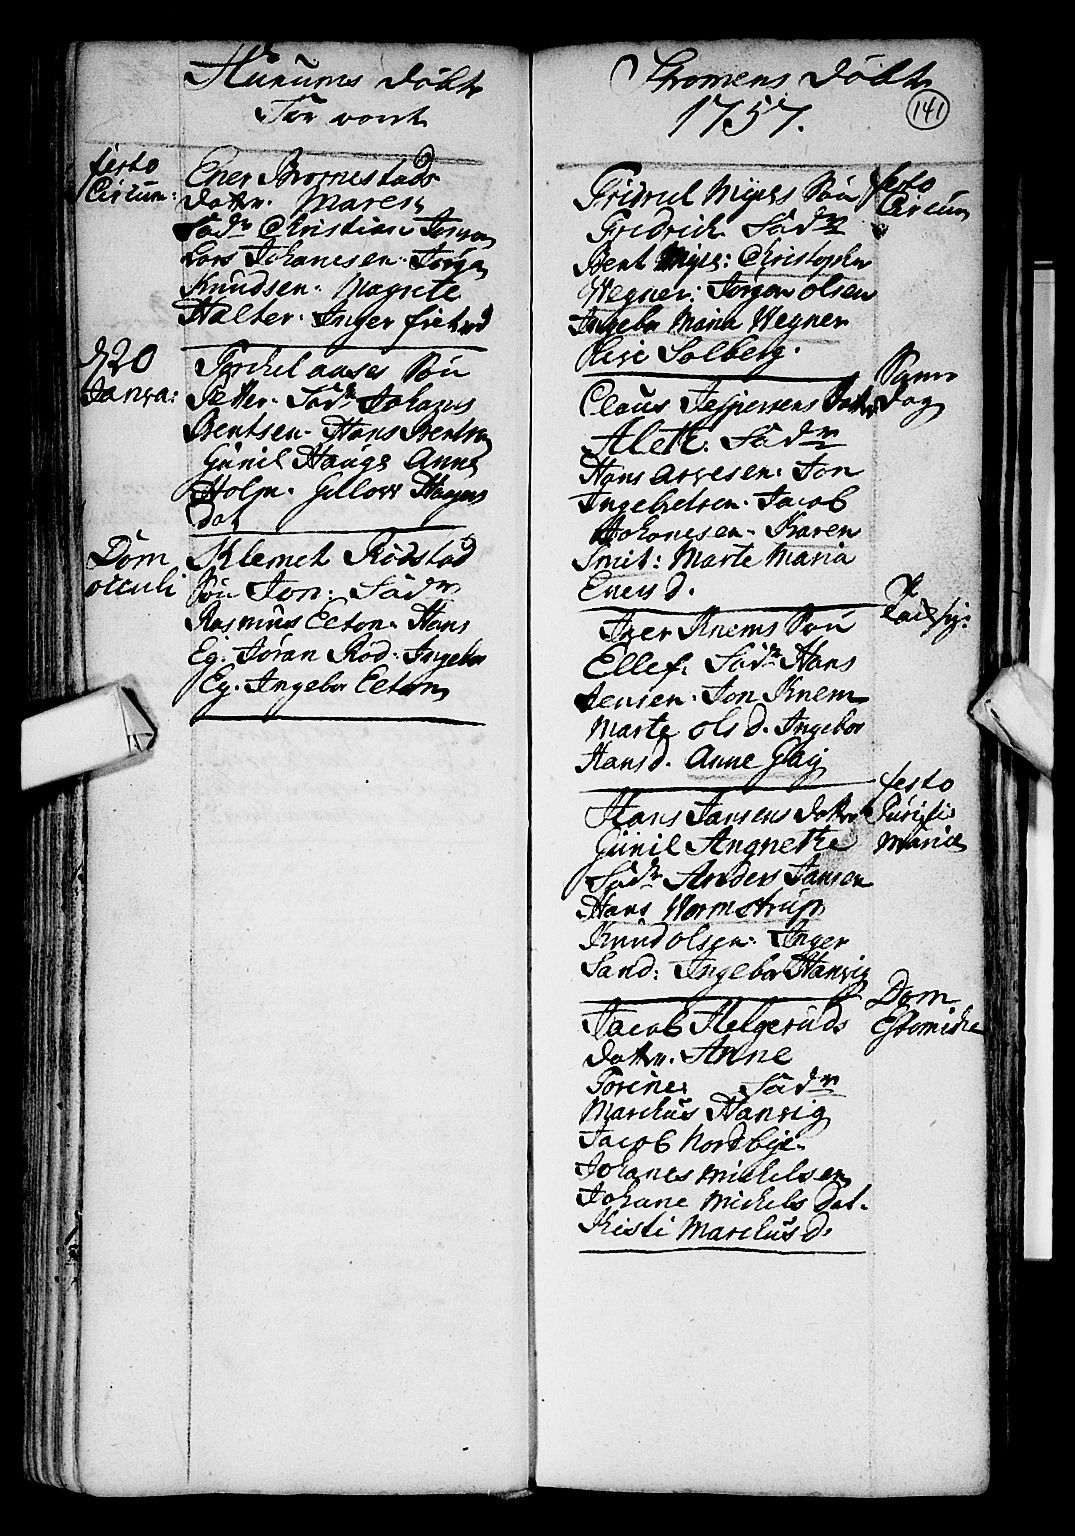 Hurums Døbte
festo
Circum:
Ener Tromestads
Dotter. Maren
Fadr Christian
Lars Johanesen. Jørgen
Knudsen. Magrete
Halter. Inger
d 20
Janua:
Søn
Petter. Fadr Johanes
Bentsen. Hans Bentsen
Gunil Hauge Anne
Holm.
Dat
Dom
occuli
Klemet Rødstad
Søn Jon: Fadr
Rasmus Ecton. Hans
Eg. Jøran Rød. Ingebor
Eg. Ingebor Ecton
Strømens Døbte
1757.
141
festo
Circum
Fridrich Søn
Fridrich Fadr
Bent Christopher
Wegner: Jørgen olsen
Ingebor Maria Wegner
Solberg.
Dag
Claus Jespersens
Aleth. Fadr
Hans arvesen. Jon
Ingebretsen. Jacob
Johanesen. Karen
Smit: Marte Maria
Eners d.
Iver Knems Søn
Ellef. Fadr Hans
Jensen. Jon Knem
Marte ols d. Ingebor
Hans d. Anne
festo
Purifi:
Mariæ
Hans Jansens Dotter
Gunil Angnethe
Fadr Anders Jansen
Hans Wormstrup
Knud olsen. Inger
Sand: Ingebor Hansvig
Dom
Estomihi
Jacob Helgeruds
Dotter. Anne
Torine Fadr
Marckus Hansvig
Jacob Nordbye
Johanes Mickelsen
Johane Mickels Dat.
Kisti Marckus d.